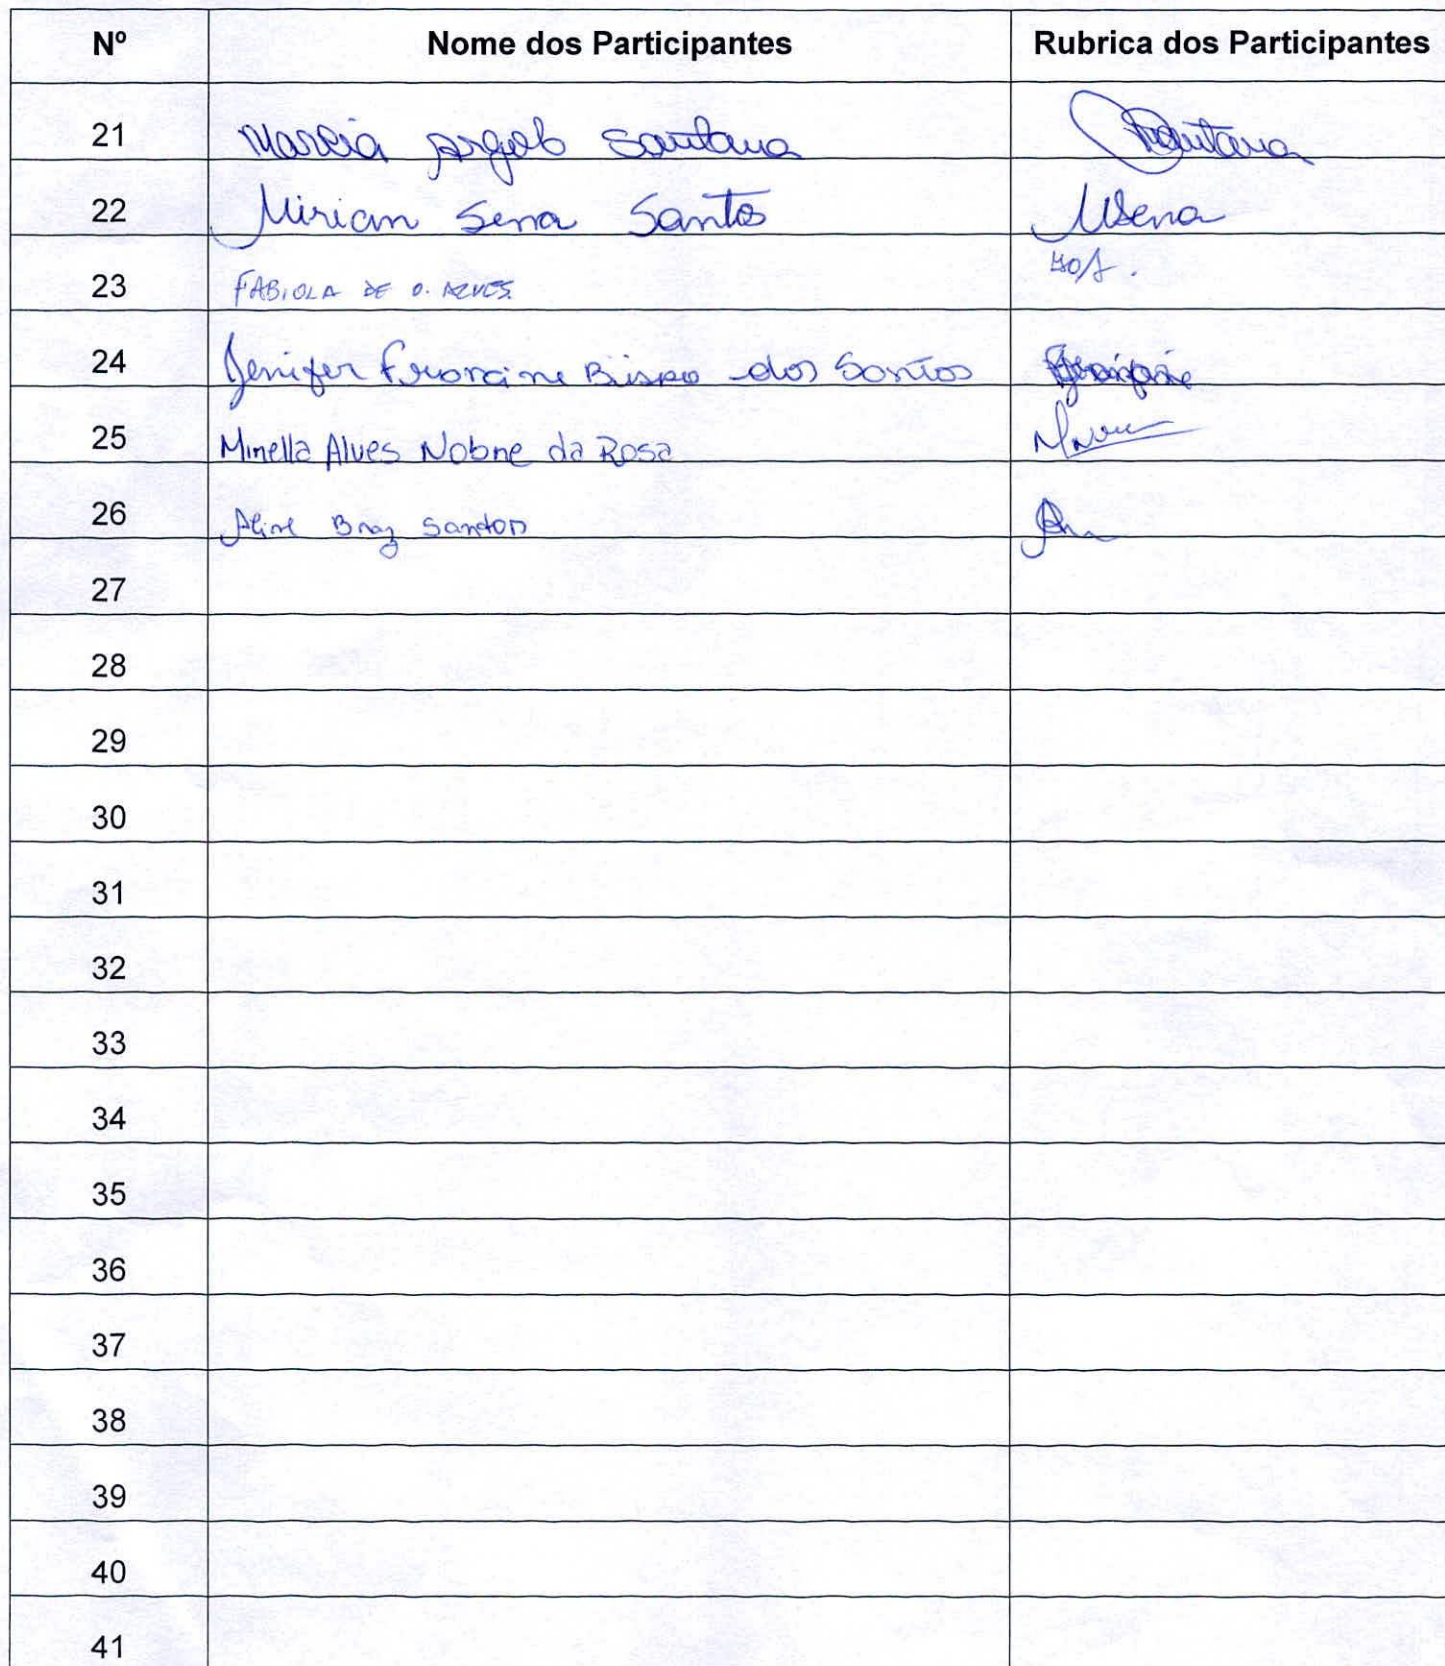 Nº Nome dos Participantes Rubrica dos Participantes
21 Marcia Argolo Santana Santana
22 Miriam Sena Santos MSena
23 FABIOLA DE O. ALVES
24 Jenifer Francine Bispo dos Santos
25 Minella Alves Nobne da Rosa
26 Aline Braz Santos
27
28
29
30
31
32
33
34
35
36
37
38
39
40
41